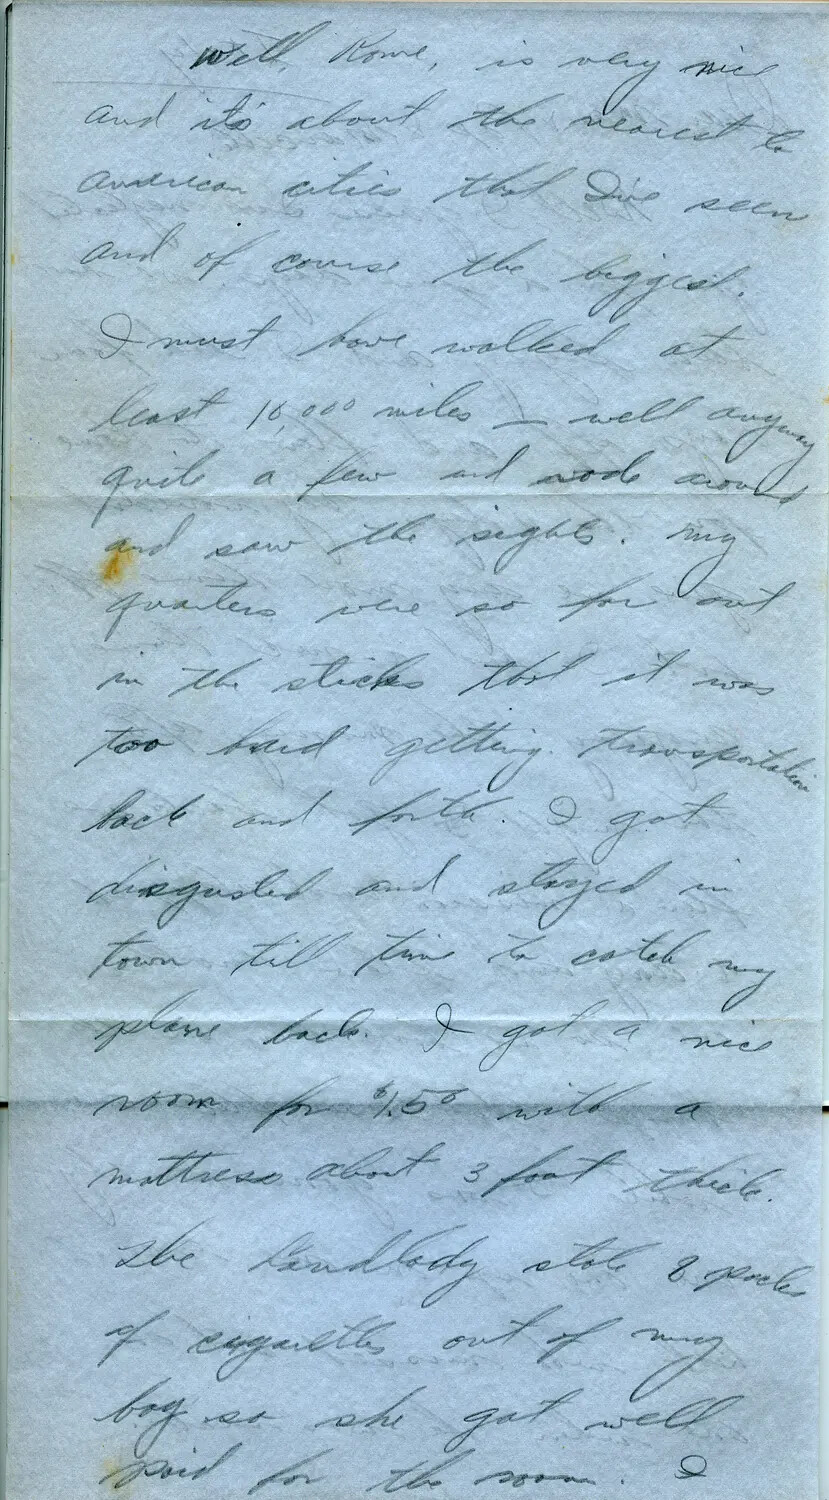 Well, Rome, is very nice
and it's about the nearest to
american cities that I've seen
and of course the biggest.
I must have walked at
least 10,000 miles — well anyway
quite a few and rode around
and saw the sights. My
quarters were so far out
in the sticks that it was
too hard getting transportation
back and forth. I got
disgusted and stayed in
town till time to catch my
plane back. I got a nice
room for $1.50 with a
mattress about 3 foot thick.
The landlady stole 8 packs
of cigarettes out of my
bag so she got well
paid for the room. I